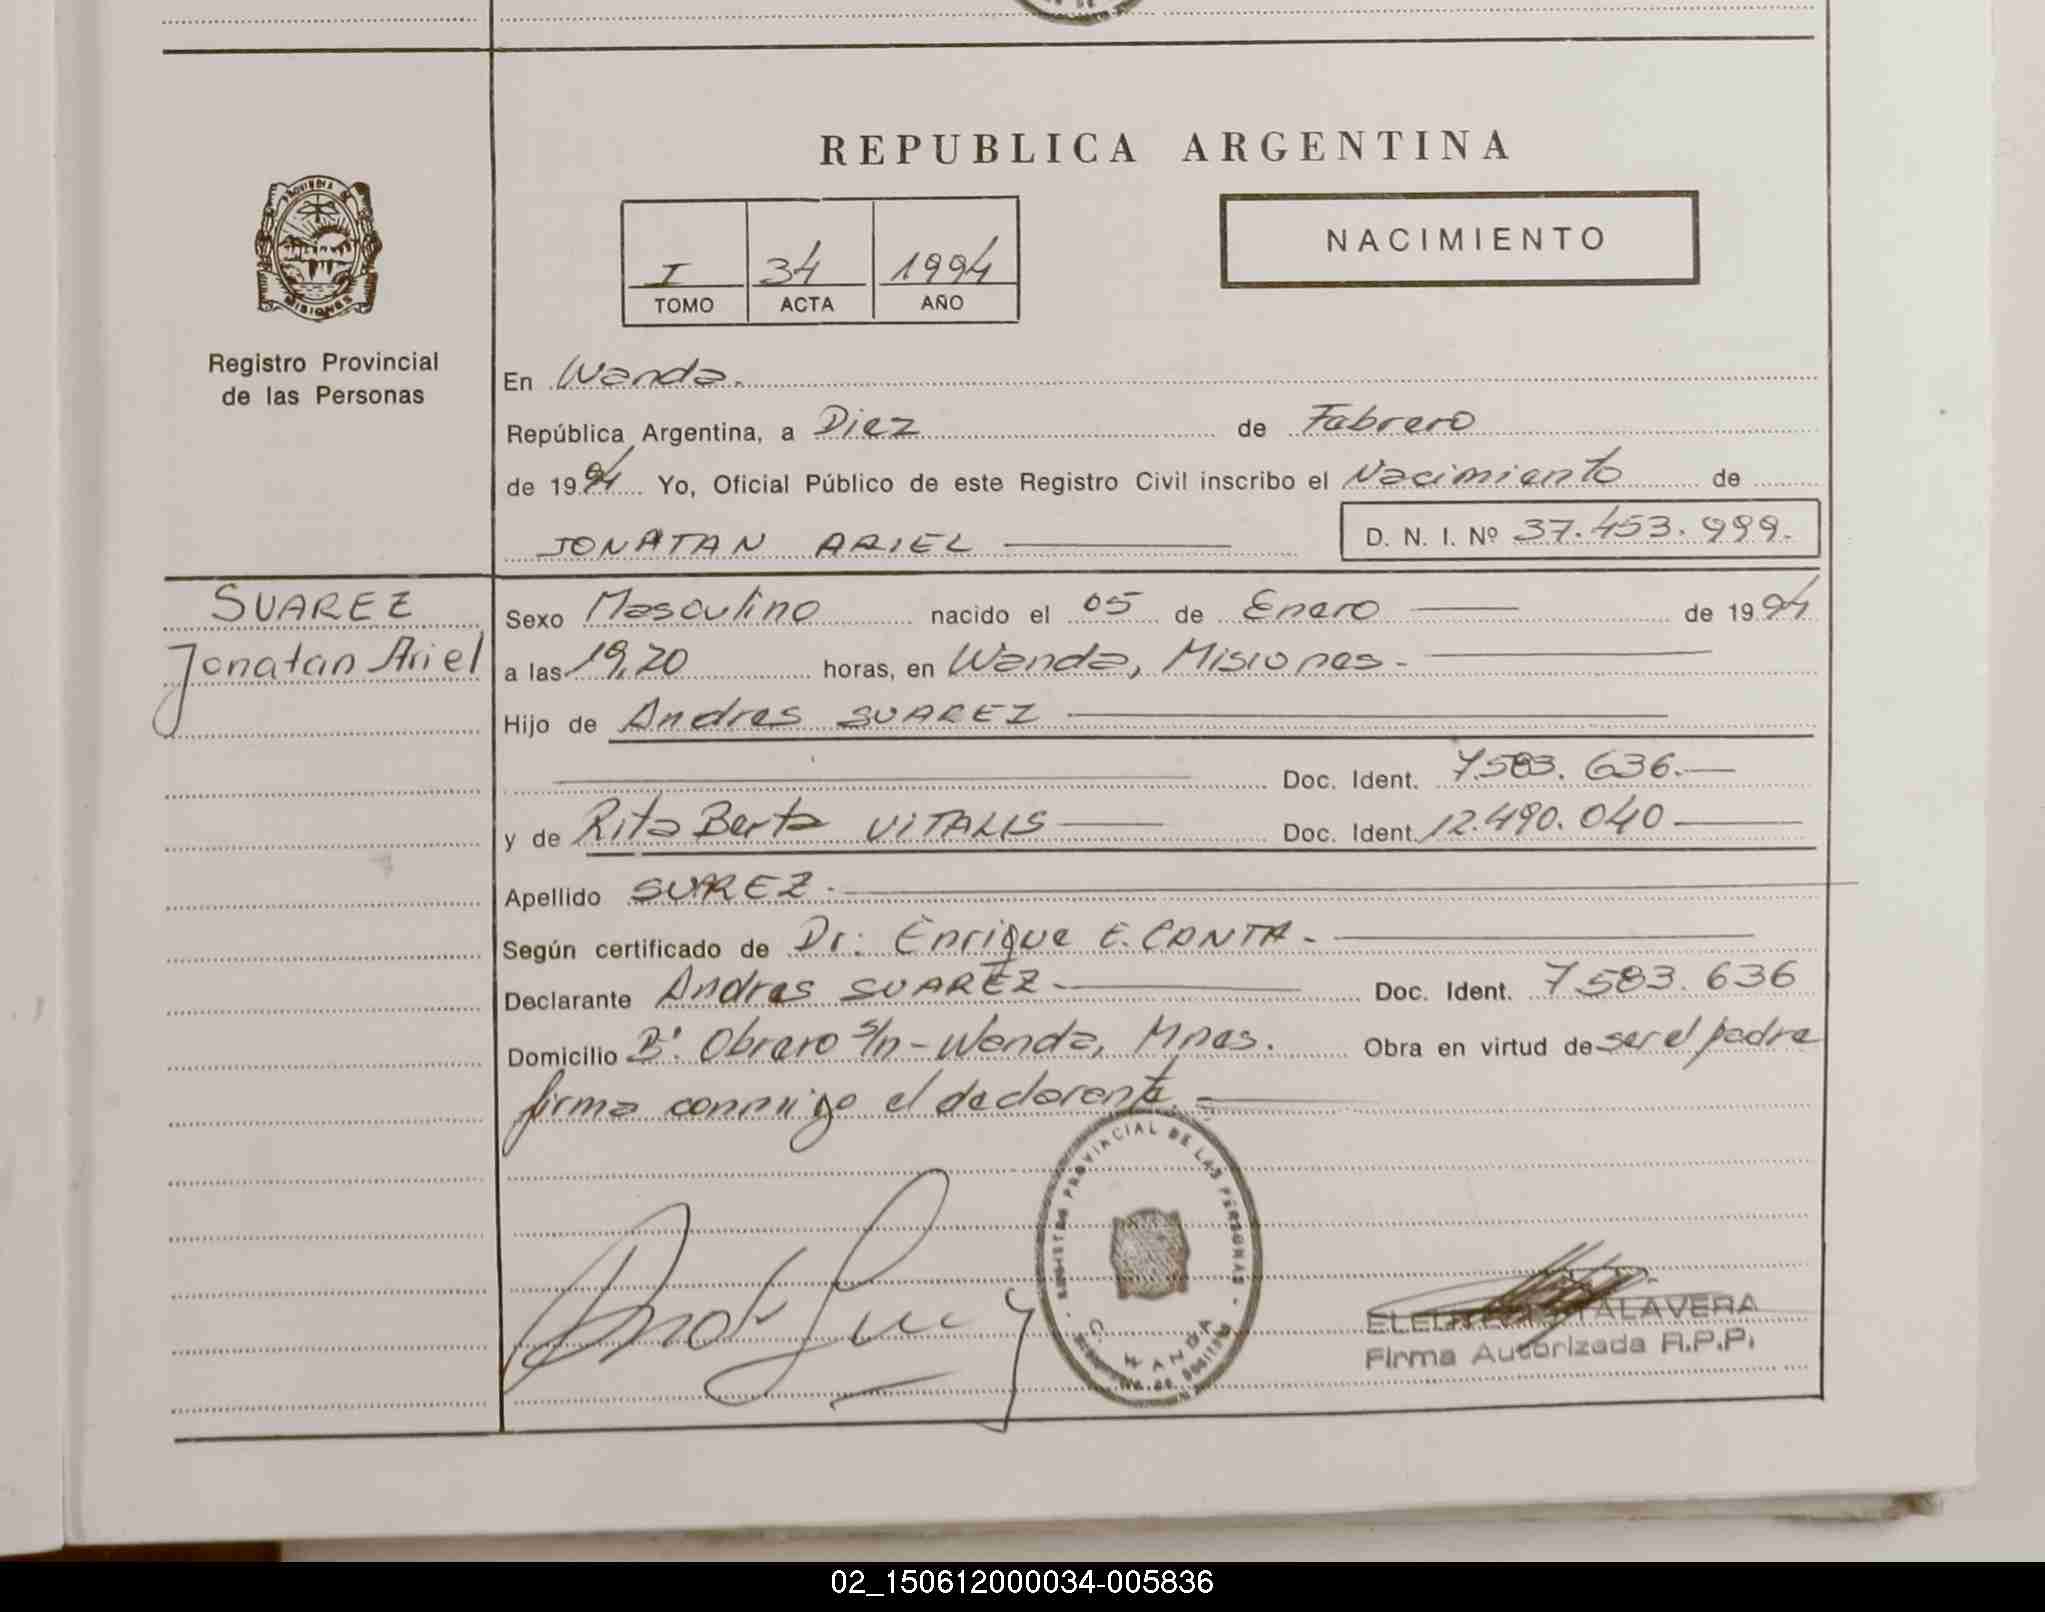 REPUBLICA ARGENTINA
I 34 1994
TOMO ACTA AÑO
NACIMIENTO
PROVINCIA DE
MISIONES
Registro Provincial
de las Personas
En Wanda.
República Argentina, a Diez de Febrero
de 1994 Yo, Oficial Público de este Registro Civil inscribo el Nacimiento de
JONATAN ARIEL D. N. I. Nº 37.453.999.
SUAREZ
Jonatan Ariel
Sexo Masculino nacido el 05 de Enero de 1994
a las 19,20 horas, en Wanda, Misiones.-
Hijo de Andres SUAREZ
Doc. Ident. 7.583.636.-
y de Rita Berta VITALIS Doc. Ident. 12.490.040
Apellido SUAREZ.
Según certificado de Dr: Enrique E. CANTA.-
Declarante Andres SUAREZ.- Doc. Ident. 7.583.636
Domicilio Bº. Obrero s/n - Wanda, Mnes. Obra en virtud de ser el padre
firma conmigo el declarante.-
REGISTRO PROVINCIAL DE LAS PERSONAS
WANDA
TALAVERA
Firma Autorizada R.P.P.
02_150612000034-005836